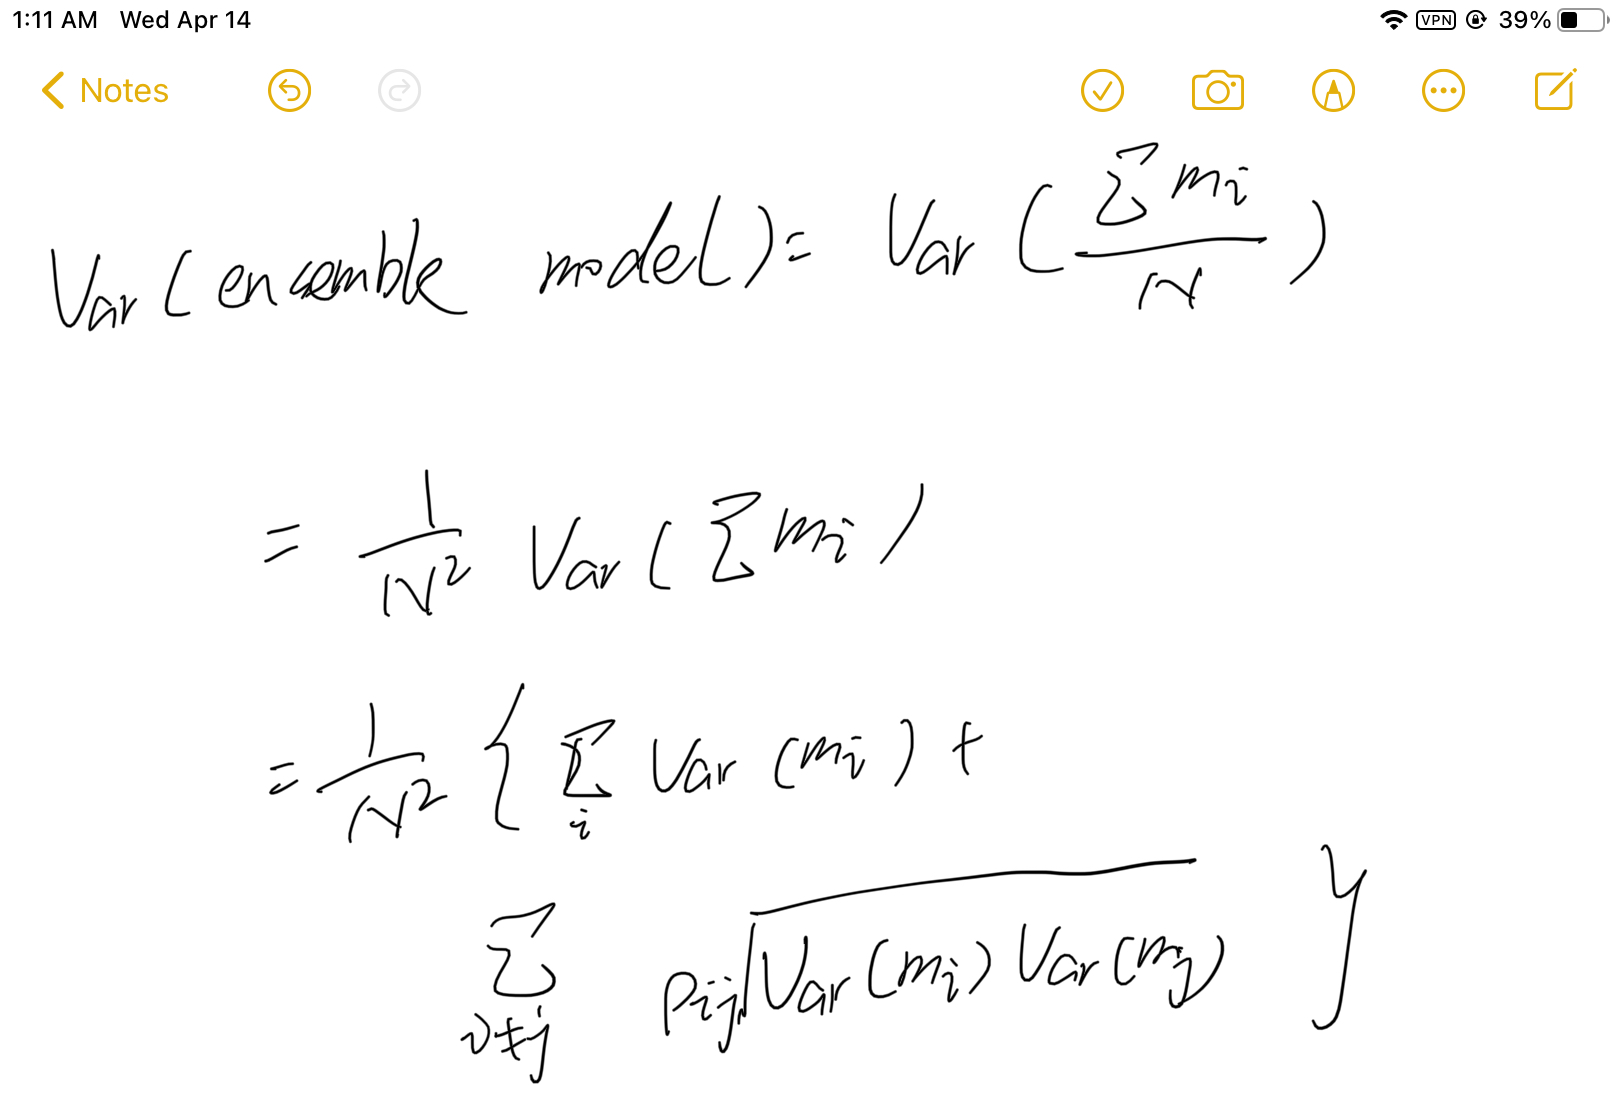 1:11 AM Wed Apr 14 VPN 39%
Notes
Var(ensemble model) = Var(∑mi/N)
= 1/N² Var(∑mi)
= 1/N² { ∑i Var(mi) +
∑i≠j ρij√Var(mi)Var(mj) }